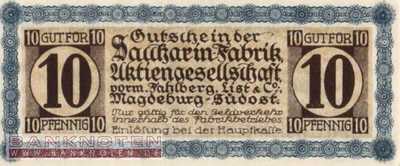 10 GUTFÜR 10
10
PFENNIG
Gutschein der
Saccharin-Fabrik
Aktiengesellschaft
vorm. Fahlberg, List & Co.
Magdeburg-Südost.
Nur gültig für den Geldverkehr
innerhalb des Fabrikbetriebes
Einlösung bei der Hauptkasse
10 GUTFÜR 10
10
10 PFENNIG 10
BANKNOTEN